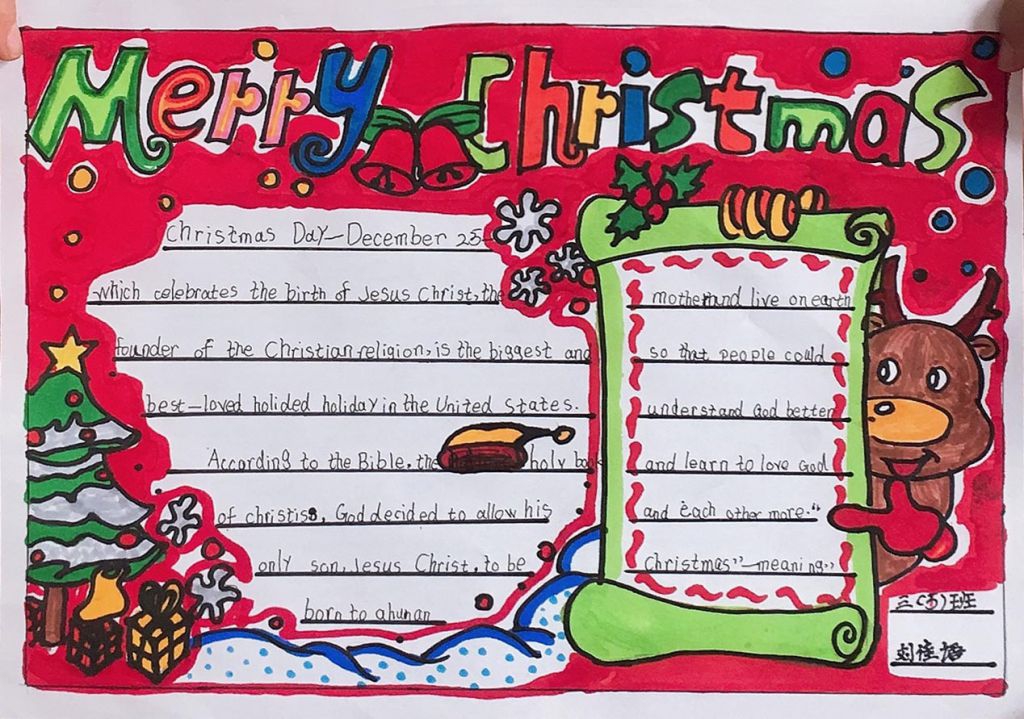 Merry Christmas
Christmas Day-December 25-
which celebrates the birth of Jesus Christ, the
founder of the Christian religion, is the biggest and
best-loved holided holiday in the United States.
According to the Bible, the holy book
of christiss, God decided to allow his
only son, Jesus Christ, to be
born to ahuman
mother and live on earth
so that people could
understand God better
and learn to love God
and each other more."
christmas"-meaning"
三(5)班